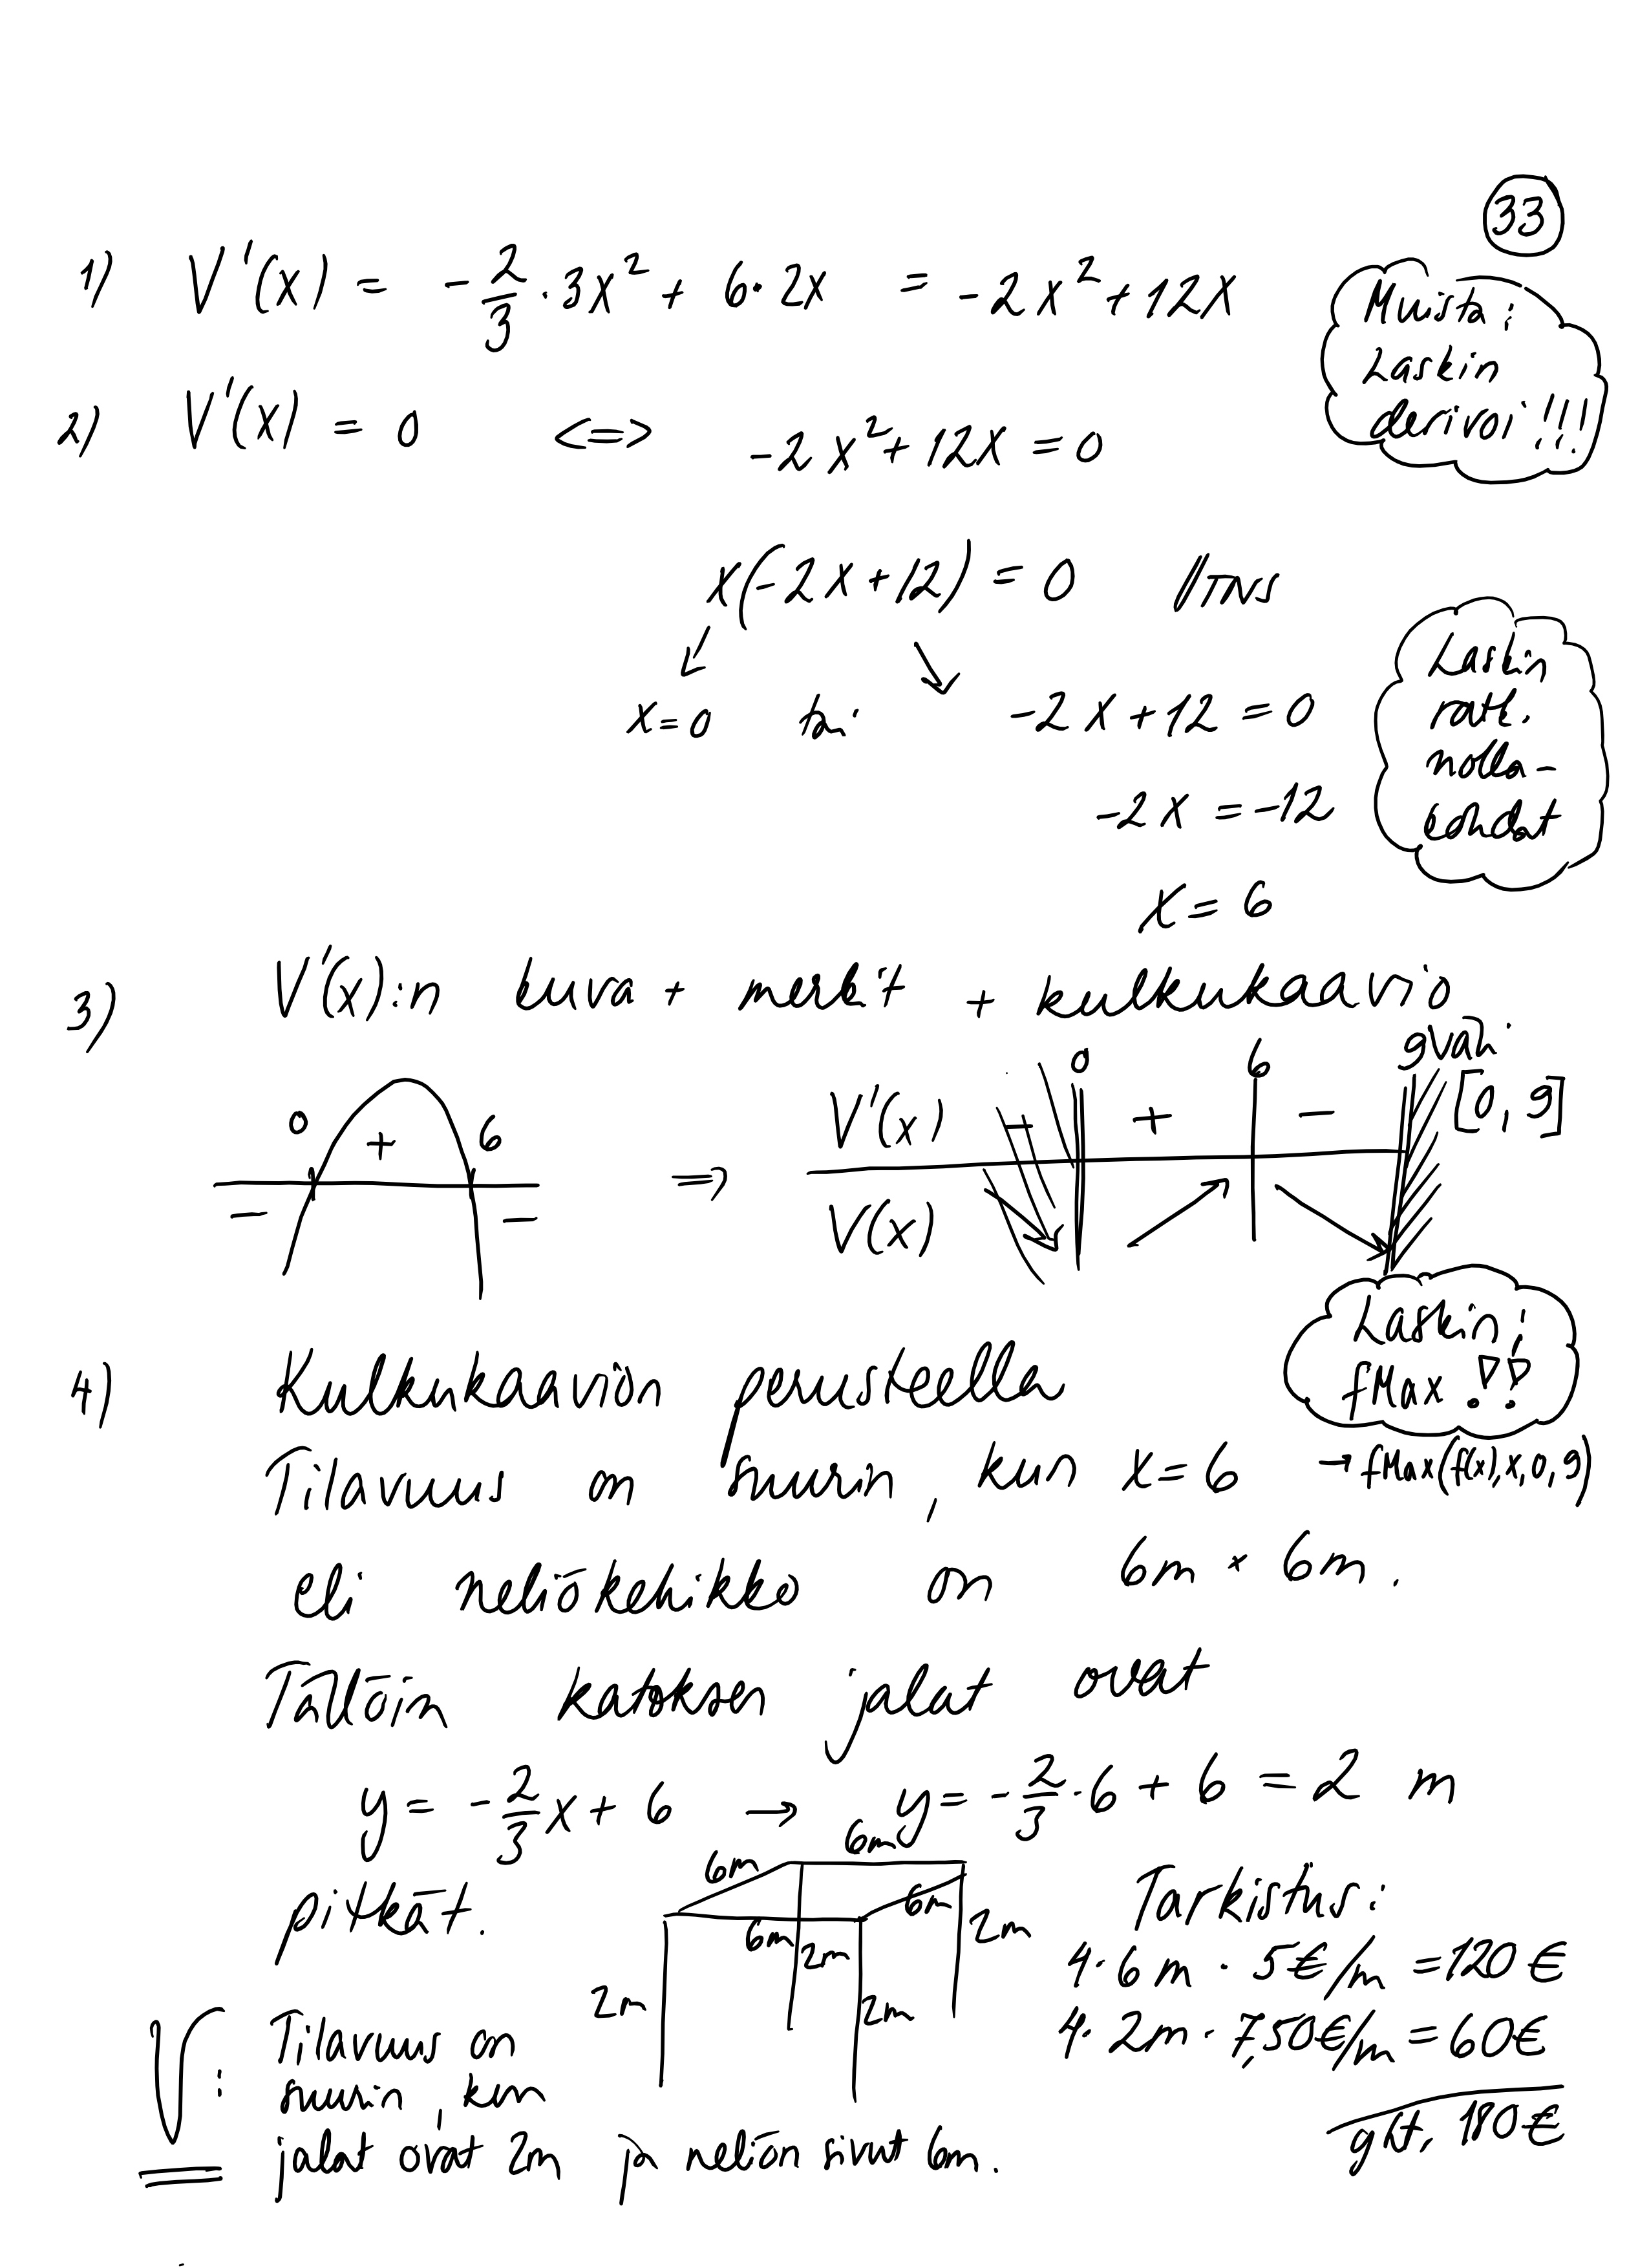 33
1) V'(x) = -2/3 · 3x² + 6 · 2x = -2x² + 12x
Muista:
Laskin
derivoi!!!
2) V'(x) = 0 <=> -2x² + 12x = 0
x(-2x + 12) = 0 //TNS
x = 0 tai -2x + 12 = 0
-2x = -12
x = 6
Laskin
ratk.
nolla-
kohdat
3) V'(x):n kuva + merkit + kulkukaavio
0 + 6
- -
=>
0 6
[0, 9]
V'(x) - + -
V(x)
4) Kulkukaavion perusteella
Laskin:
fMax !!
Tilavuus on suurin, kun x = 6 → fMax(f(x), x, 0, 9)
eli neliökehikko on 6m × 6m.
Tällöin katoksen jalat ovat
y = -2/3 x + 6 → y = -2/3 · 6 + 6 = 2 m
pitkät.
6m 6m
6m 6m
2m 2m 2m 2m
Tarkistus:
4 · 6 m · 5 €/m = 120 €
4 · 2m · 7,50€/m = 60€
yht. 180€
V: Tilavuus on
suurin, kun
jalat ovat 2m ja neliön sivut 6m.